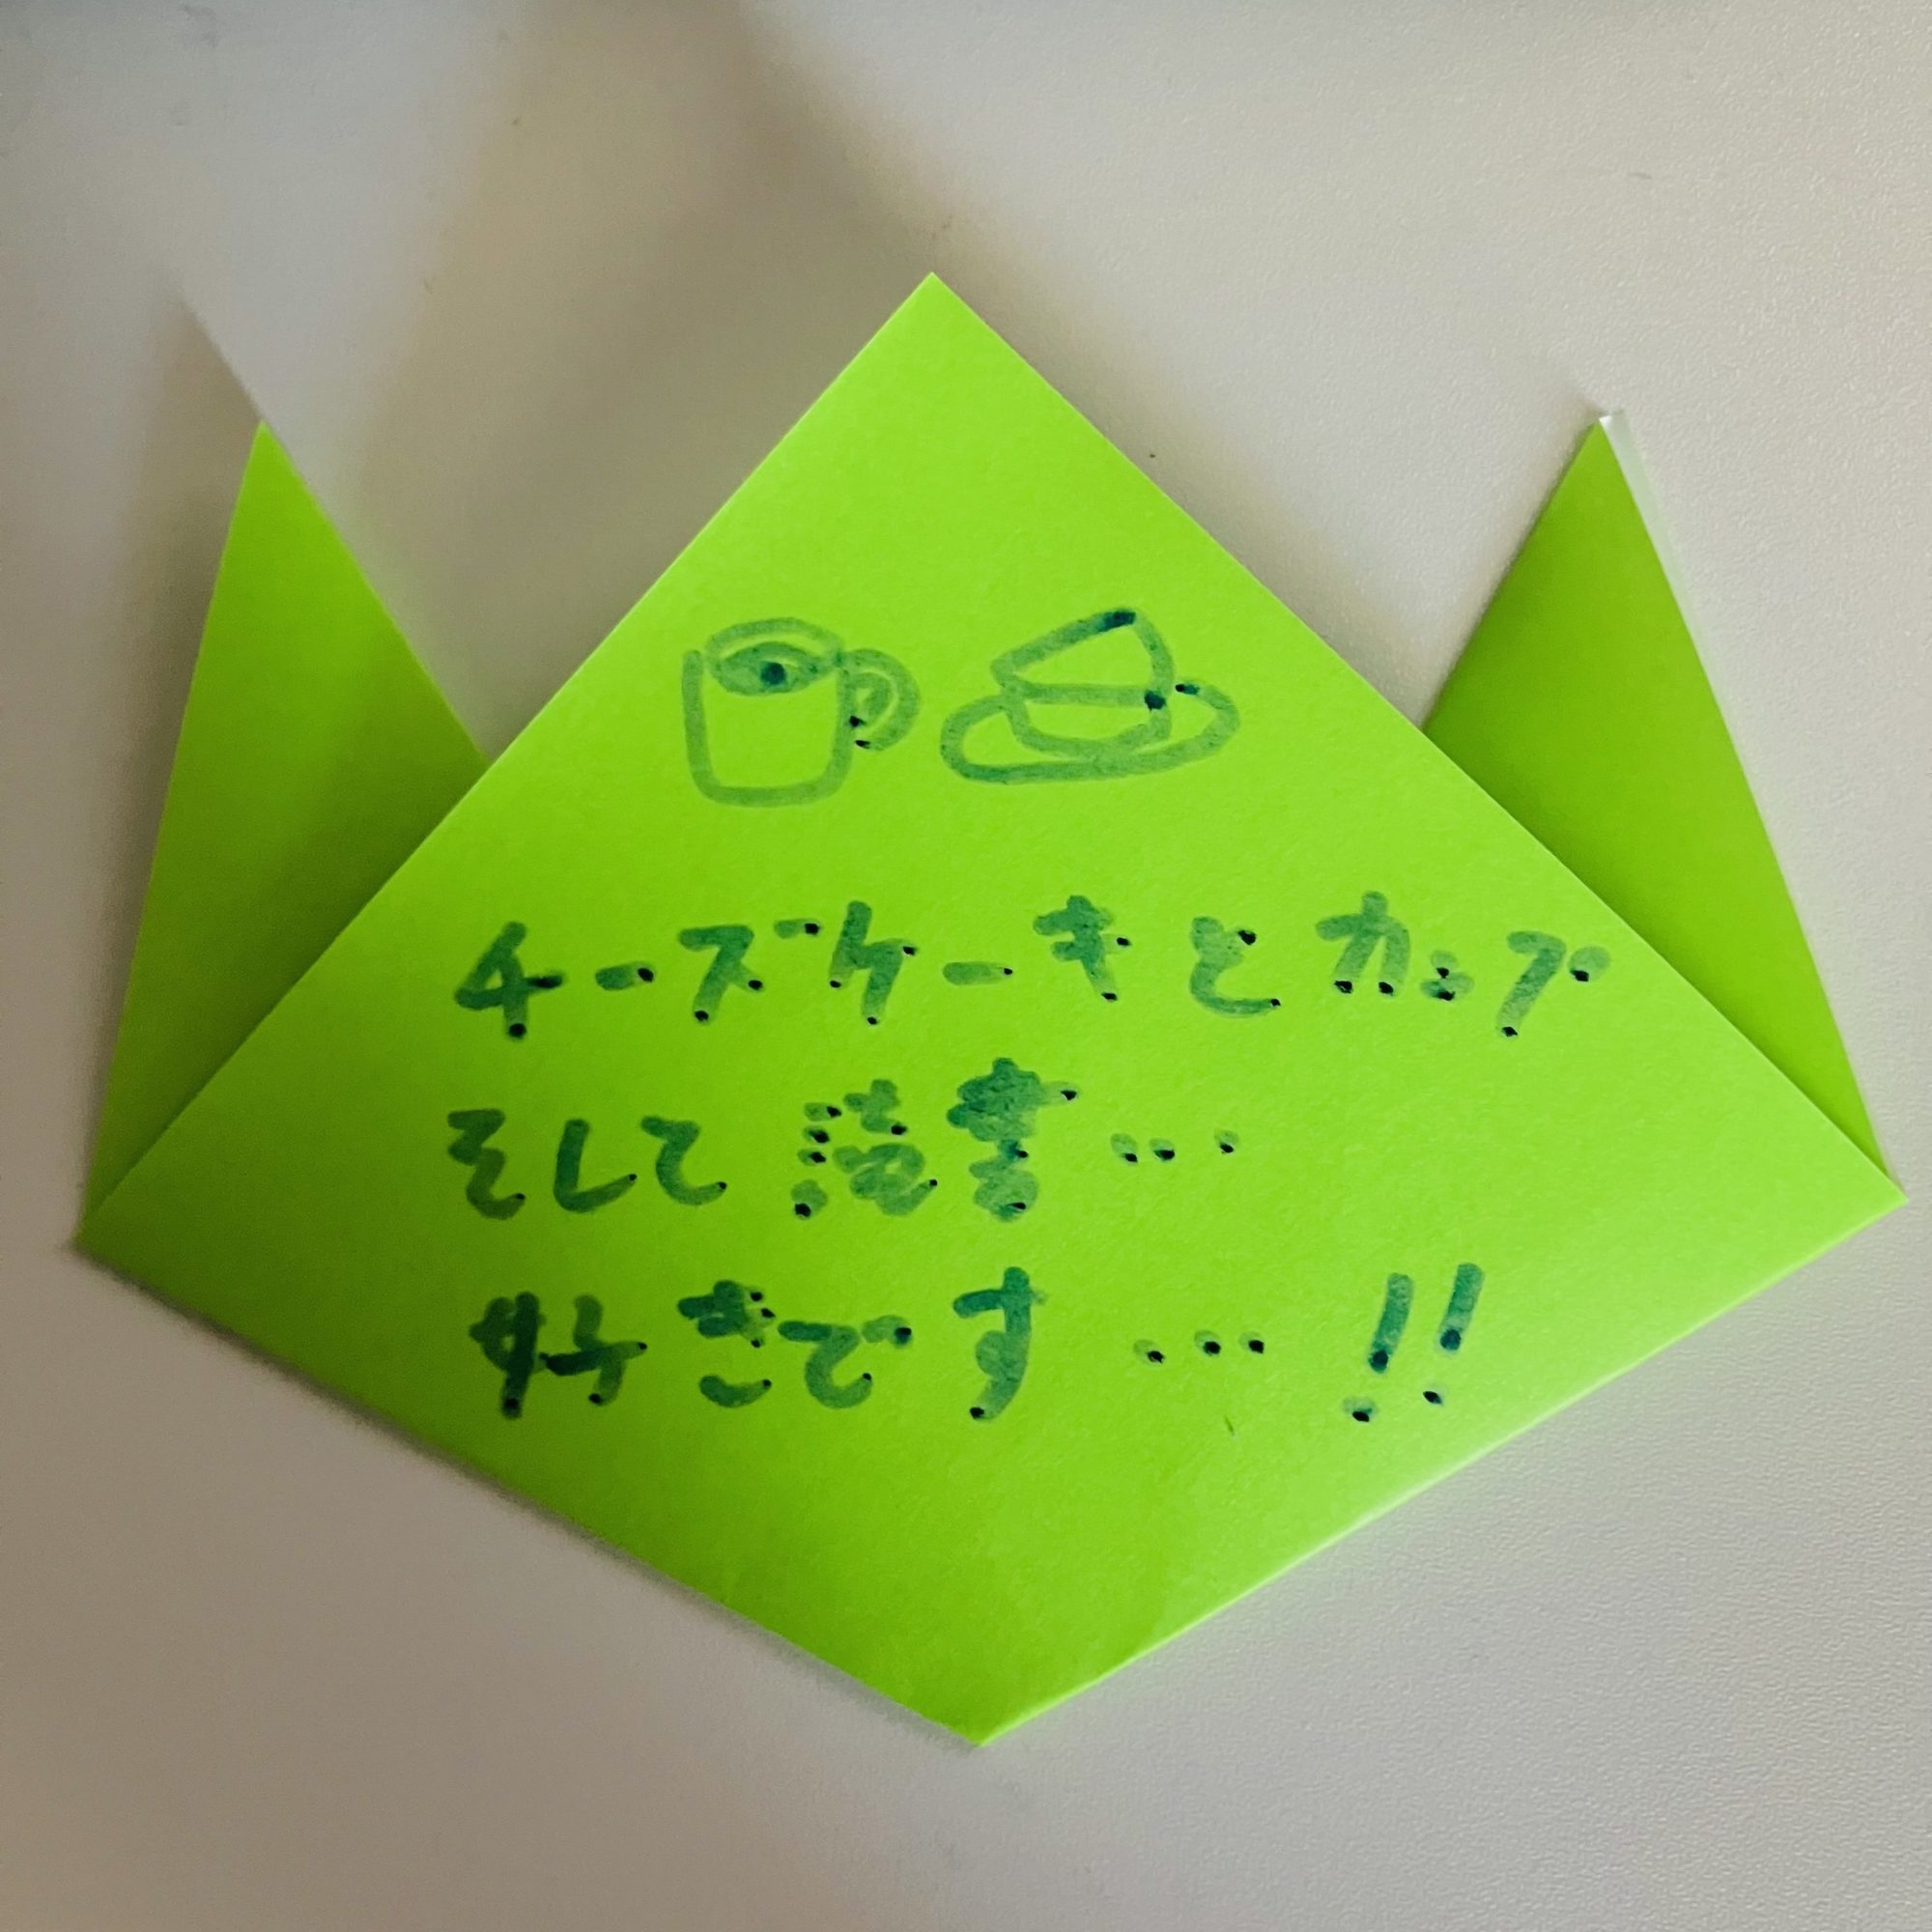 チーズケーキとカップ
そして読書…
好きです…!!